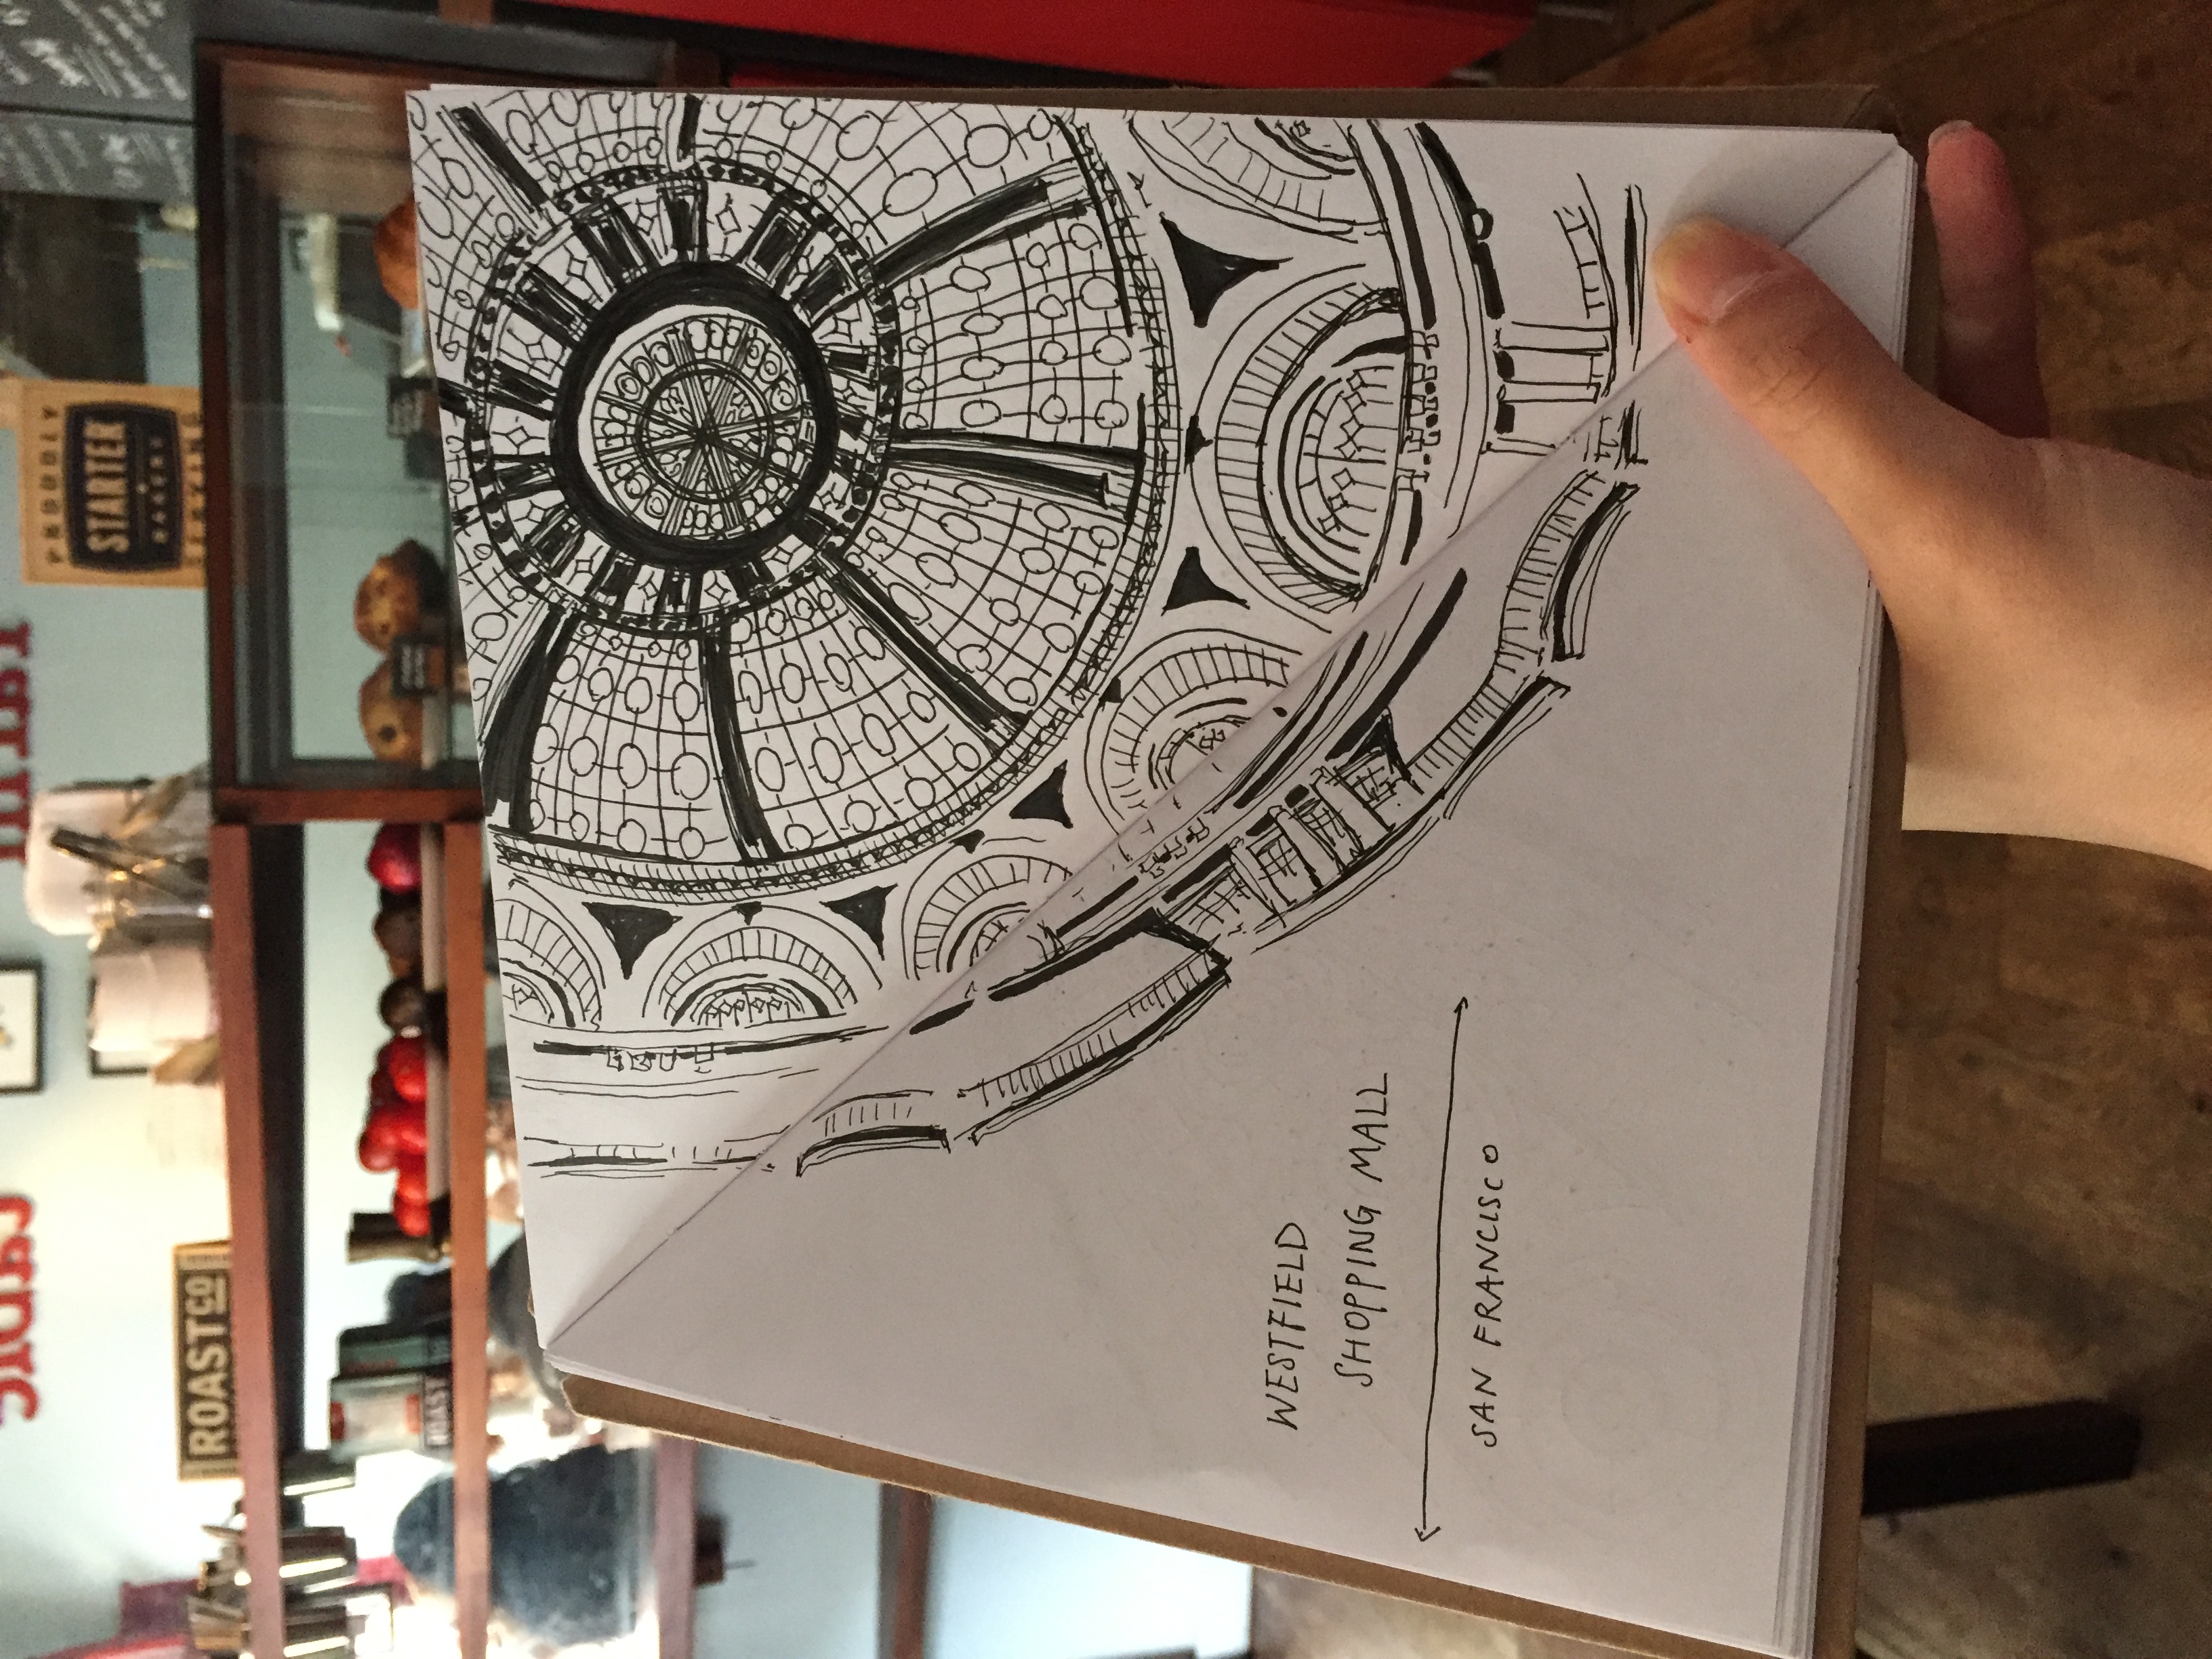 ROAST CO
PROUDLY
STARTER
BAKERY
SERVING
ROAST
WESTFIELD
SHOPPING MALL
SAN FRANCISCO